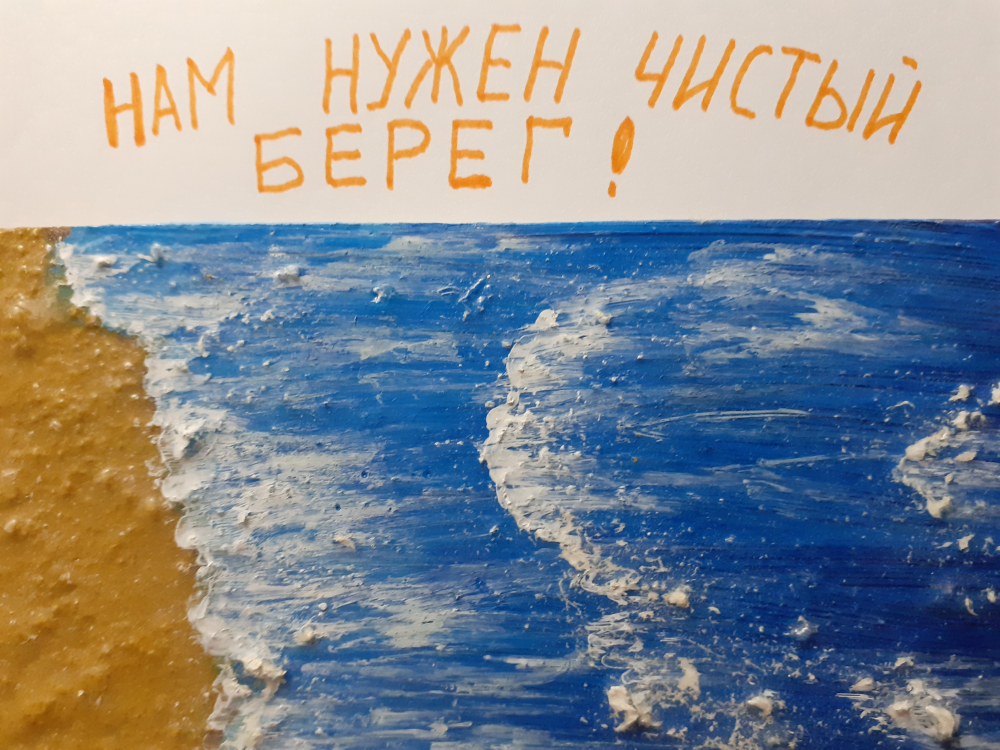 НАМ НУЖЕН ЧИСТЫЙ
БЕРЕГ!